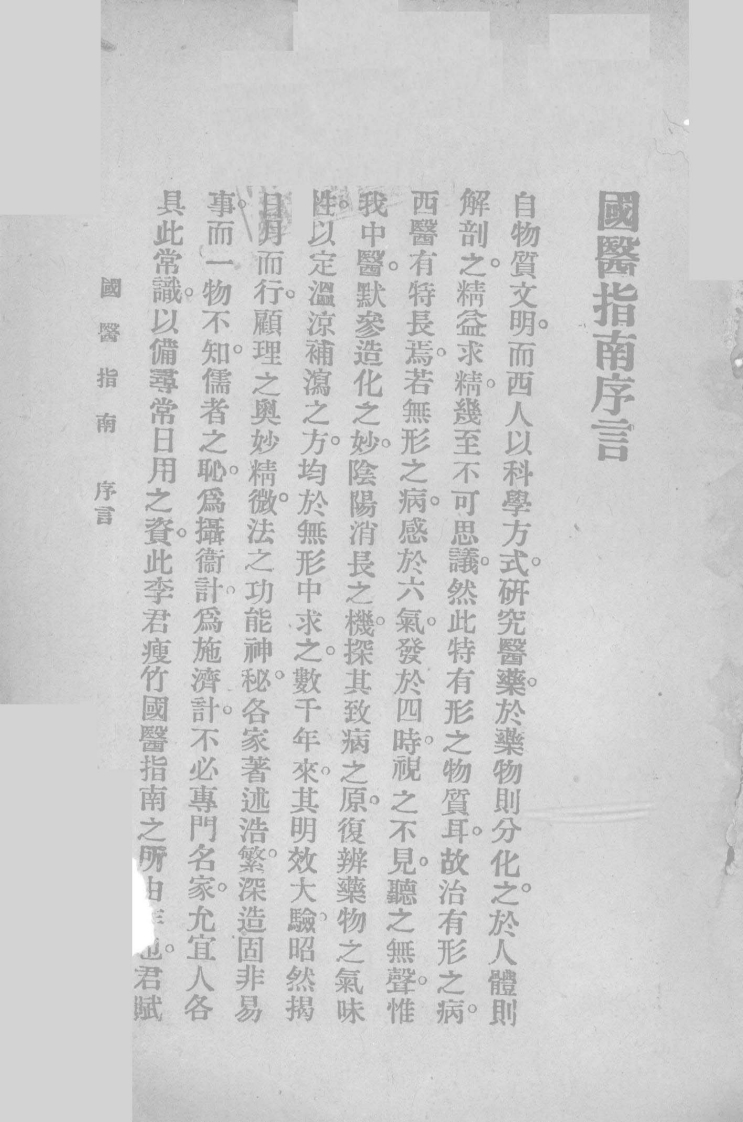 國醫指南序言
自物質文明。而西人以科學方式。研究醫藥。於藥物則分化之。於人體則
解剖之。精益求精。幾至不可思議。然此特有形之物質耳。故治有形之病。
西醫有特長焉。若無形之病。感於六氣。發於四時。視之不見。聽之無聲。惟
我中醫。默參造化之妙。陰陽消長之機。探其致病之原。復辨藥物之氣味
性。以定溫涼補瀉之方。均於無形中求之。數千年來。其明效大驗。昭然揭
日月而行。顧理之奧妙精微。法之功能神秘。各家著述浩繁。深造固非易
事。而一物不知。儒者之恥。爲攝衞計。爲施濟計。不必專門名家。允宜人各
具此常識。以備尋常日用之資。此李君瘦竹國醫指南之所由也。君賦
國醫指南 序言